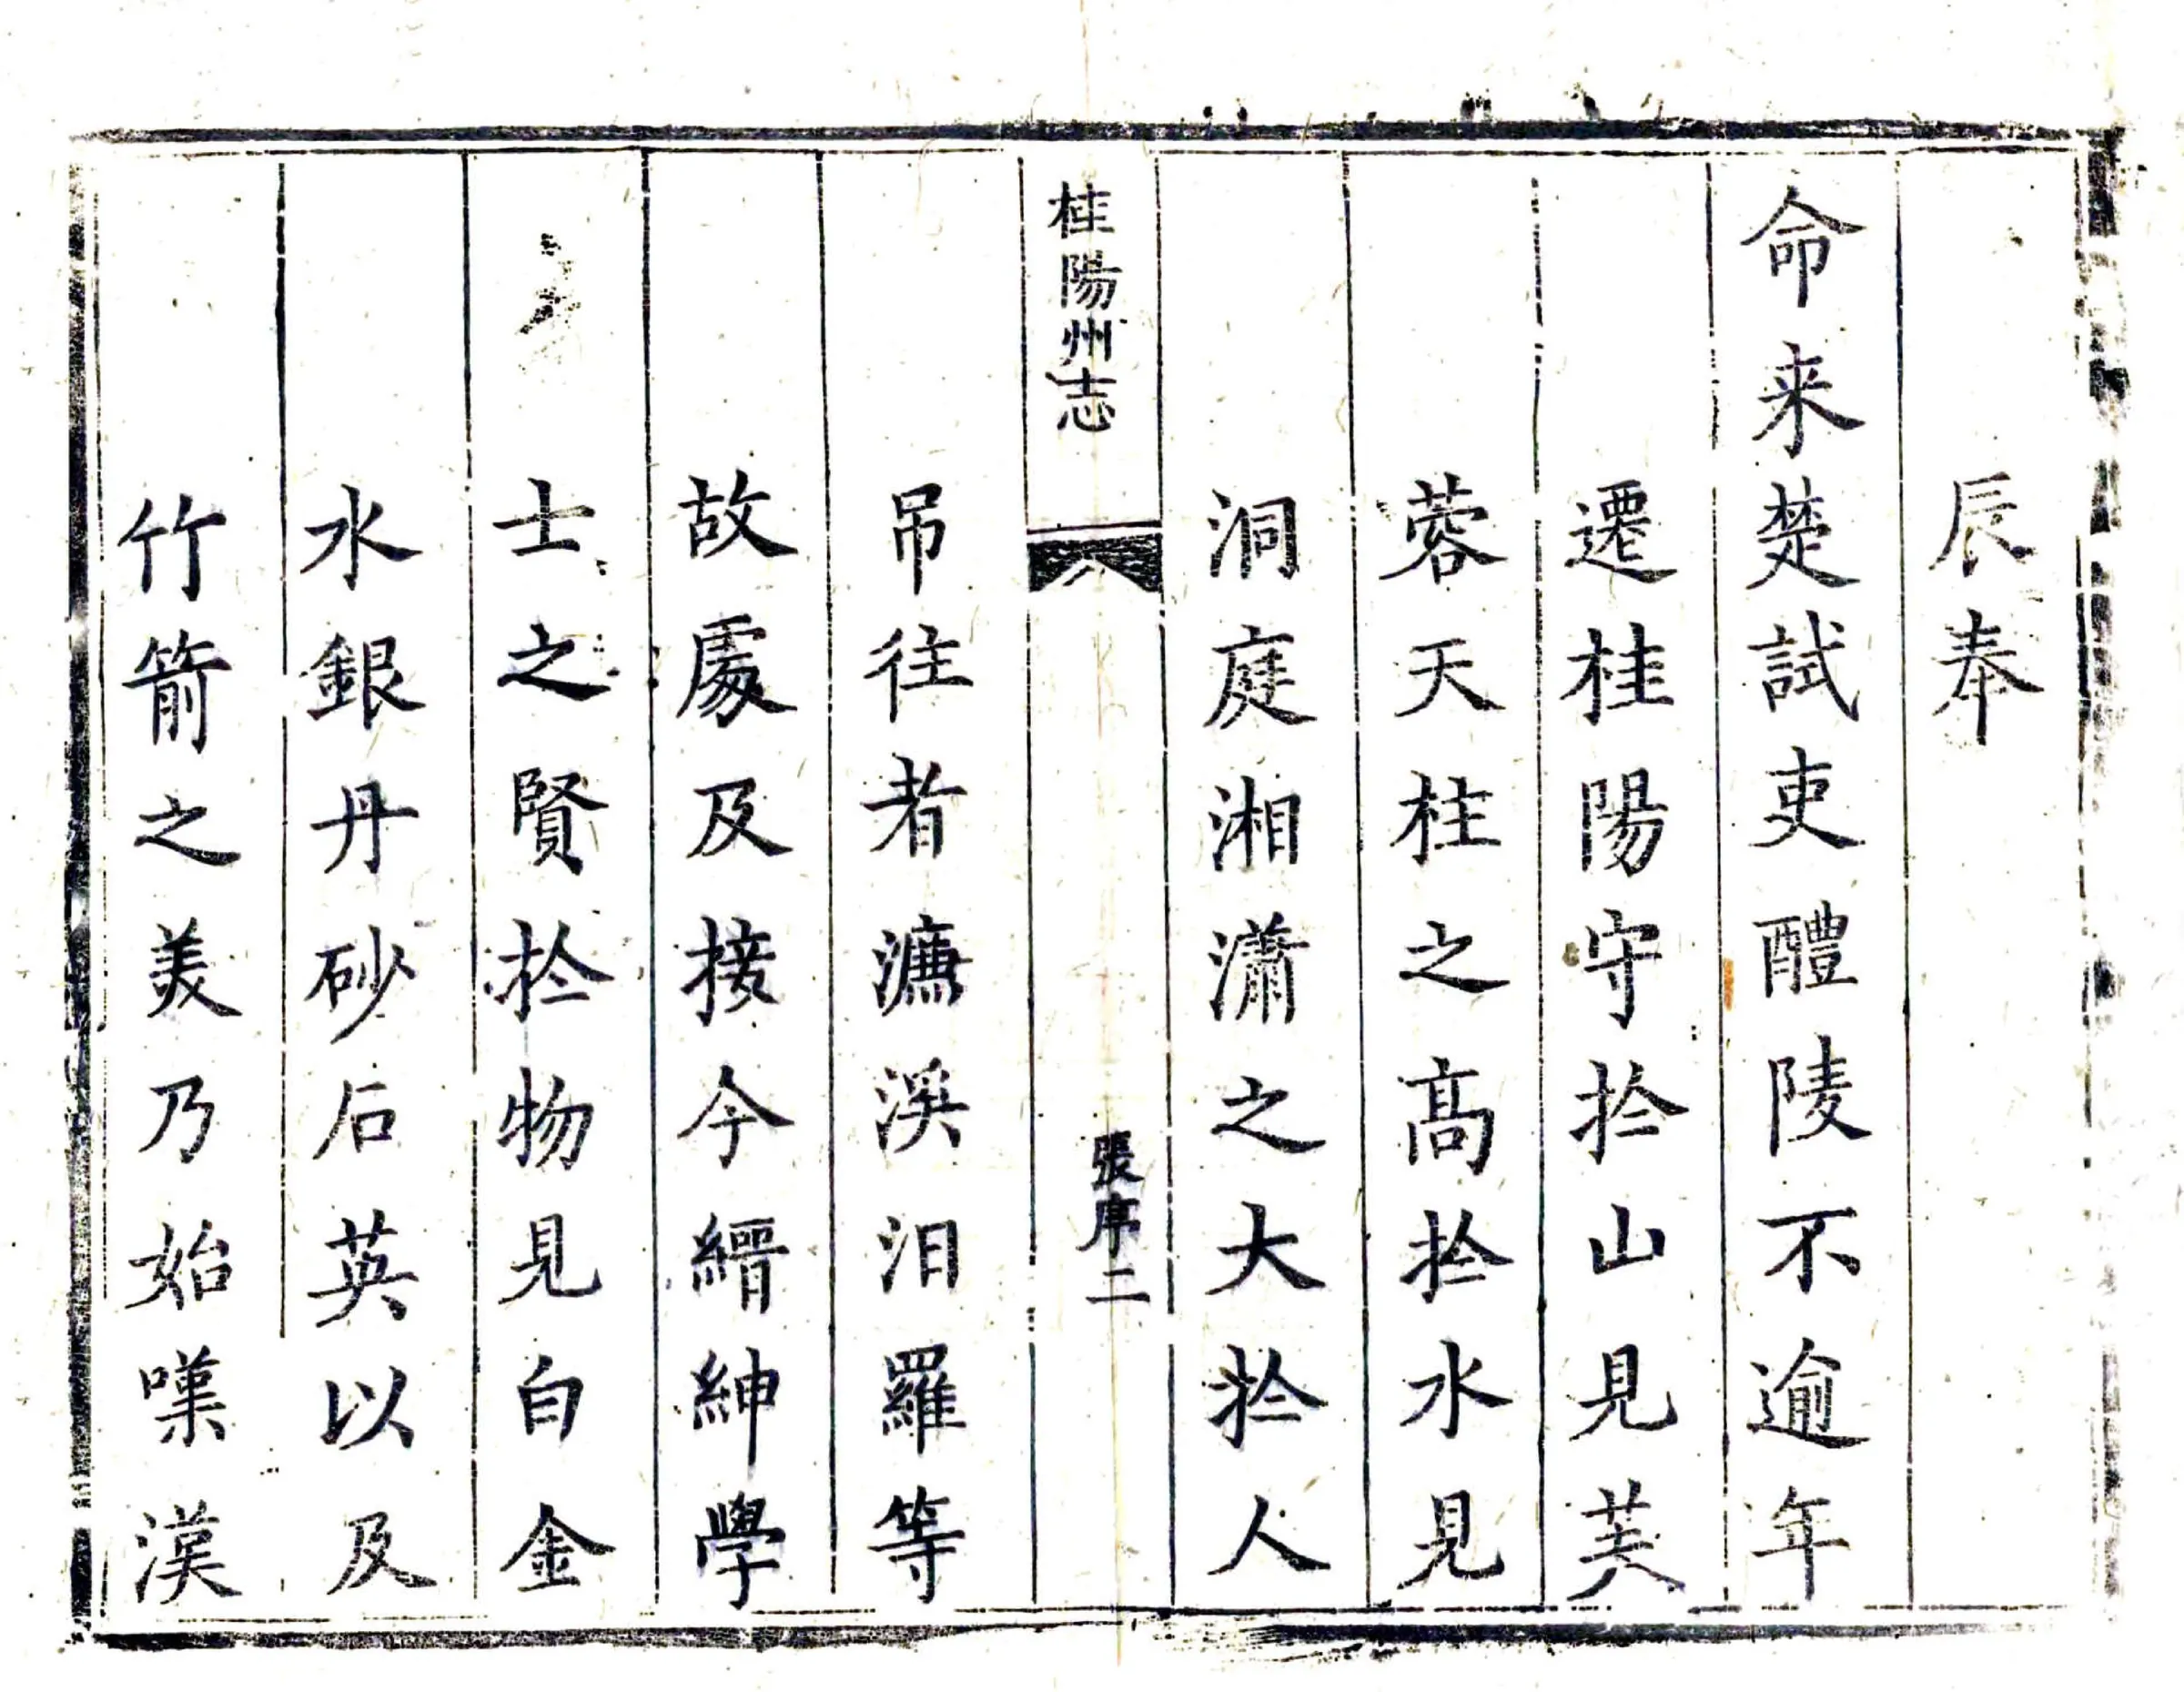 辰奉
命来楚試吏醴陵不逾年
遷桂陽守扵山見芙
蓉天柱之髙扵水見
洞庭湘瀟之大扵人
桂陽州志
張序二
吊往者濂溪汨羅等
故處及接今縉紳學
士之賢扵物見白金
水銀丹砂石英以及
竹箭之美乃始嘆漢